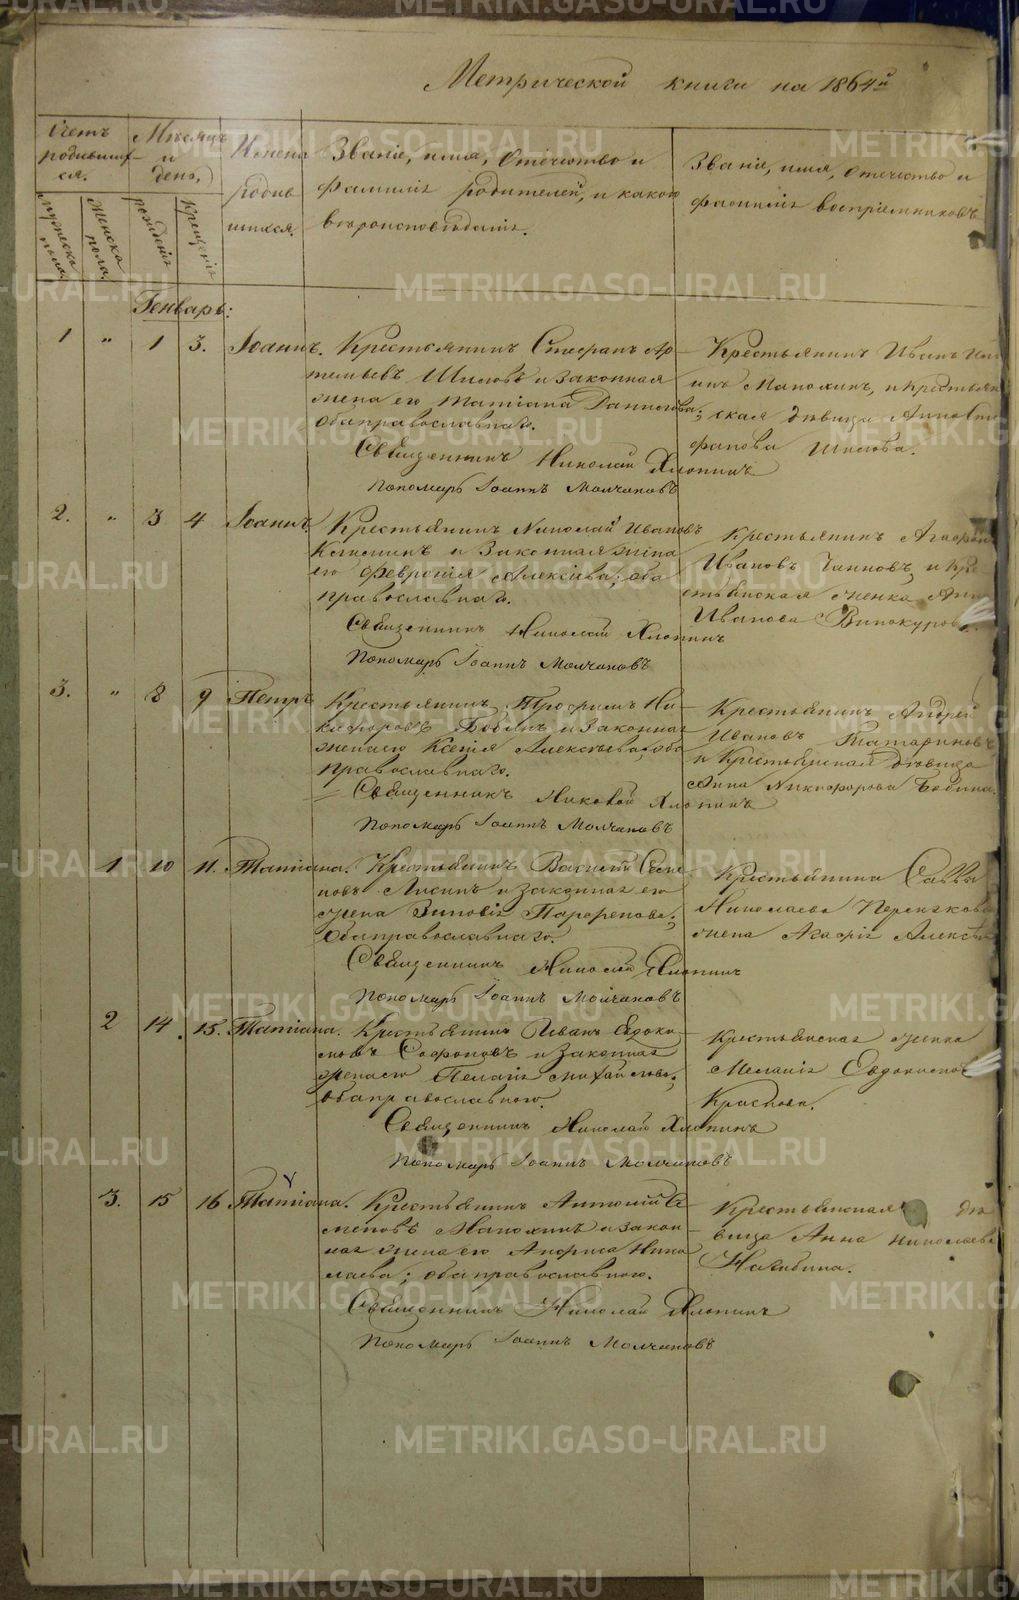 Метрической книги на 1864й
Счетъ родившихся.
Мѣсяцъ и день.
Имена родившихся.
Званіе, имя, отечество и фамилія родителей, и какого вѣроисповѣданія.
Званіе, имя, отечество и фамилія воспріемниковъ
мужеска пола
женска пола
рожденія
крещенія
Генварь:
1 " 1 3. Іоаннъ.
Крестьянинъ Стефанъ Ар-
темьевъ Шиловъ и законная
жена его Татіана Данилова;
оба православнаго.
Священникъ Николай Хлопинъ
Пономарь Іоаннъ Молчановъ
Крестьянинъ Иванъ
Манохинъ, и крестьян
ская дѣвица Анна Сте
фанова Шилова.
2. " 3 4 Іоаннъ.
Крестьянинъ Николай Ивановъ
и законная жена
его Февронія Алексѣева; оба
православнаго.
Священникъ Николай Хлопинъ
Пономарь Іоаннъ Молчановъ
Крестьянинъ Агафон
Ивановъ и кре
стьянская женка Анна
Иванова Винокуров
3. " 8 9 Петръ
Крестьянинъ Трофимъ Ни-
кифоровъ Бобинъ и законная
жена его Ксенія Алексѣева, оба
православнаго.
Священникъ Николай Хлопинъ
Пономарь Іоаннъ Молчановъ
Крестьянинъ Андрей
Ивановъ Татариновъ
и крестьянская дѣвица
Анна Никифорова Бобина.
1 10 11. Татіана.
Крестьянинъ Василій Семе
новъ Лисинъ и законная его
жена Зиновія Парфенова;
оба православнаго.
Священникъ Николай Хлопинъ
Пономарь Іоаннъ Молчановъ
Крестьянина Саввы
Николаева
жена Агафія Алексѣе
2 14 15. Татіана.
Крестьянинъ Иванъ Евдоки
мовъ Софоновъ и законная
жена его Пелагія Михайлова;
оба православнаго.
Священникъ Николай Хлопинъ
Пономарь Іоаннъ Молчановъ
Крестьянская женка
Меланія Евдокимов
Краснова.
3. 15 16 Татіана.
Крестьянинъ Антоній Се
меновъ Манохинъ и закон-
ная жена его Анфиса Нико
лаева; оба православнаго.
Священникъ Николай Хлопинъ
Пономарь Іоаннъ Молчановъ
Крестьянская дѣ
вица Анна Николаева
Нагибина.
METRIKI.GASO-URAL.RU